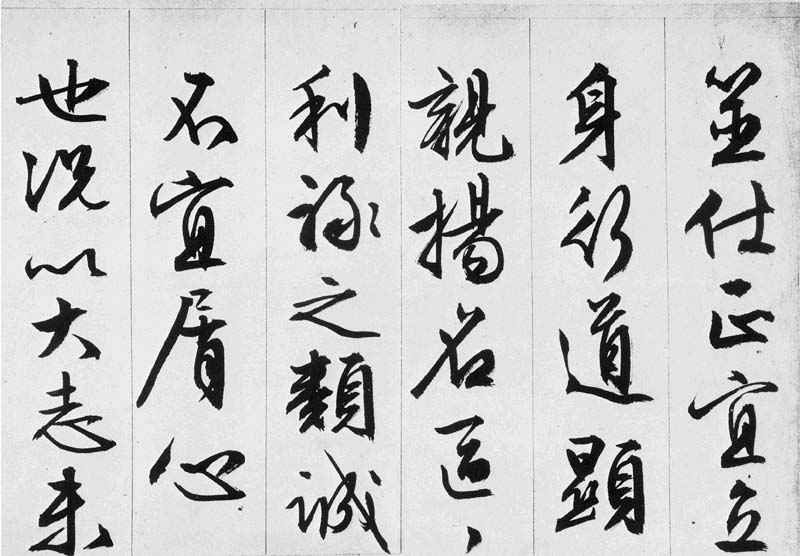 筮仕正宜立
身行道顯
親揚名區々
利祿之類誠
不宜屑心
也況以大志未